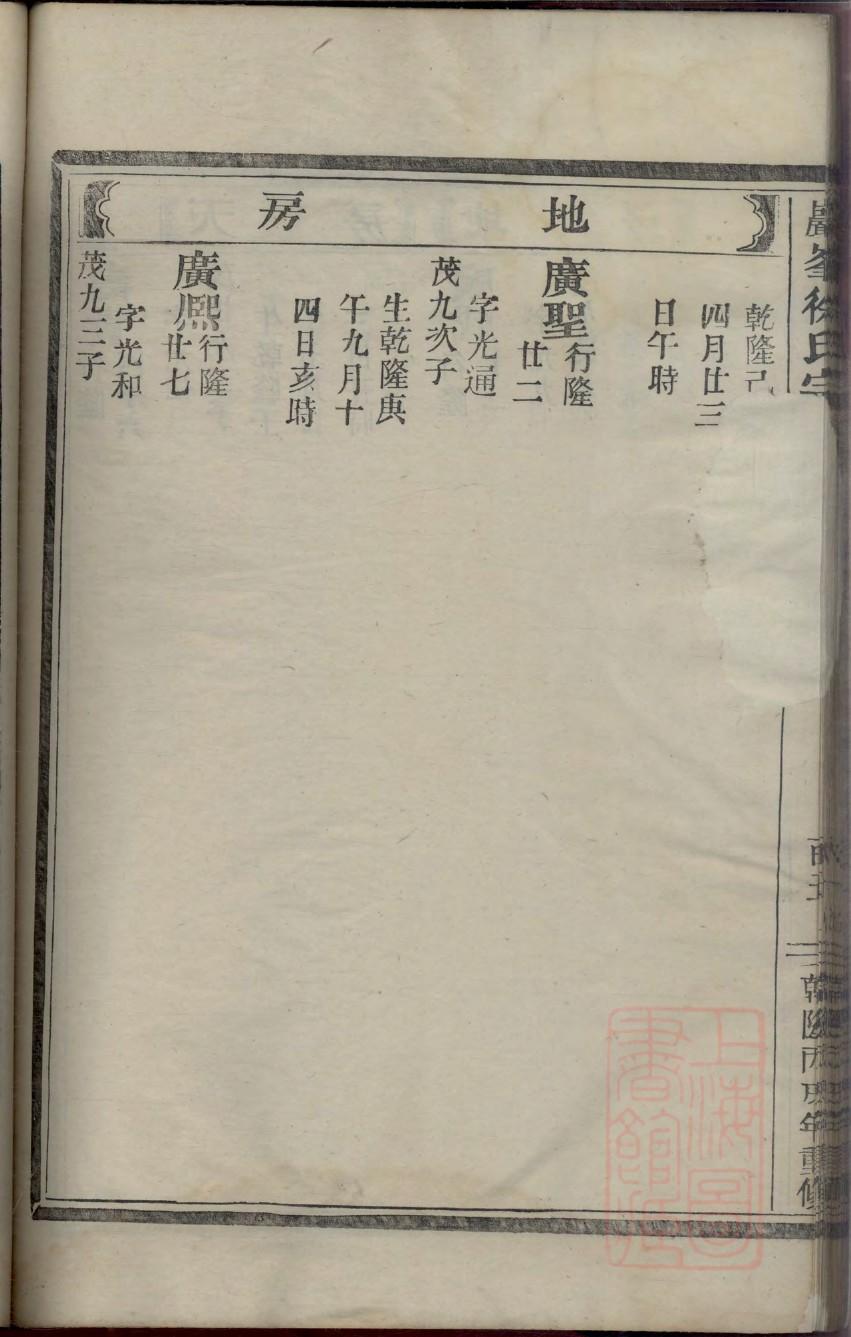 峯徐氏宗
乾隆丙戌年重修
地房
乾隆己
四月廿三
日午時
廣聖行隆
廿二
字光通
茂九次子
生乾隆庚
午九月十
四日亥時
廣熈行隆
廿七
字光和
茂九三子
上海圖
書館藏